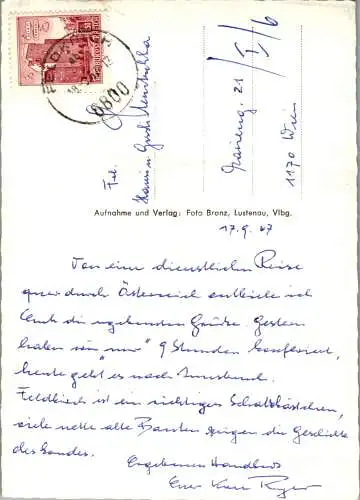 6800
Frl.
1170 Wien
Aufnahme und Verlag: Foto Branz, Lustenau, Vlbg.
17.9.67
Von einer dienstlichen Reise
quer durch Österreich entbiete ich
Euch die ergebensten Grüße. Gestern
haben wir "nur" 9 Stunden konferiert,
heute geht es nach Innsbruck.
Feldkirch ist ein richtiges Schatzkästchen,
viele nette alte Bauten zeigen die Geschichte
des Landes.
Ergebenen Handkuss
Euer